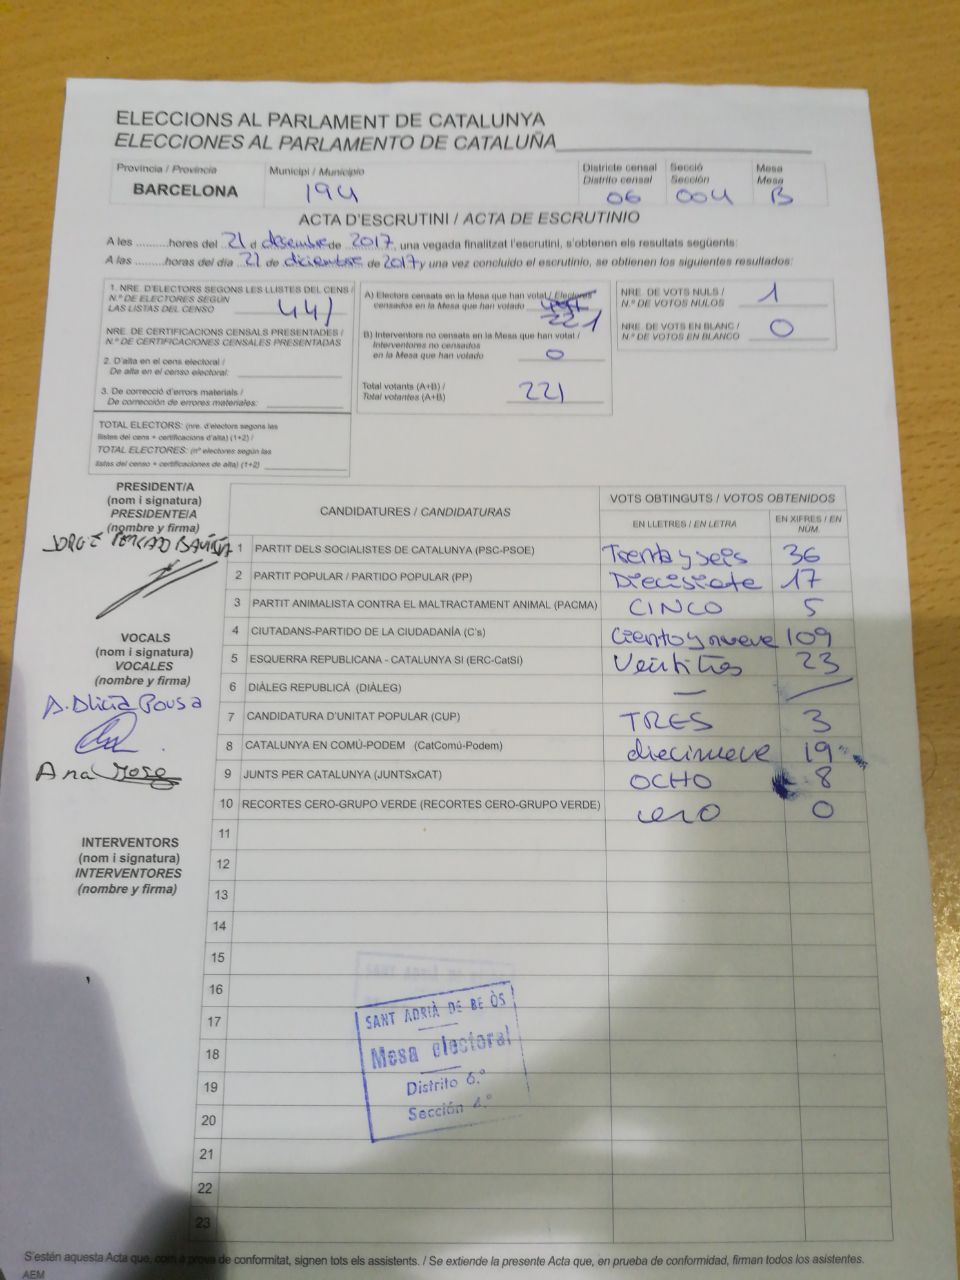 ELECCIONS AL PARLAMENT DE CATALUNYA
ELECCIONES AL PARLAMENTO DE CATALUÑA
Província / Provincia
BARCELONA
Municipi / Municipio
194
Districte censal
Distrito censal
06
Secció
Sección
004
Mesa
Mesa
B
ACTA D'ESCRUTINI / ACTA DE ESCRUTINIO
A les ..........hores del 21 d desembre de 2017, una vegada finalitzat l'escrutini, s'obtenen els resultats següents:
A las ..........horas del día 21 de diciembre de 2017 y una vez concluido el escrutinio, se obtienen los siguientes resultados:
1. NRE. D'ELECTORS SEGONS LES LLISTES DEL CENS /
N.º DE ELECTORES SEGÚN
LAS LISTAS DEL CENSO 441
NRE. DE CERTIFICACIONS CENSALS PRESENTADES /
N.º DE CERTIFICACIONES CENSALES PRESENTADAS
2. D'alta en el cens electoral /
De alta en el censo electoral:
3. De correcció d'errors materials /
De corrección de errores materiales:
TOTAL ELECTORS: (nre. d'electors segons les
llistes del cens + certificacions d'alta) (1+2) /
TOTAL ELECTORES: (nº electores según las
listas del censo + certificaciones de alta) (1+2)
A) Electors censats en la Mesa que han votat / Electores
censados en la Mesa que han votado 221
B) Interventors no censats en la Mesa que han votat /
Interventores no censados
en la Mesa que han votado 0
Total votants (A+B) /
Total votantes (A+B) 221
NRE. DE VOTS NULS /
N.º DE VOTOS NULOS 1
NRE. DE VOTS EN BLANC /
N.º DE VOTOS EN BLANCO 0
PRESIDENT/A
(nom i signatura)
PRESIDENTE/A
(nombre y firma)
JORGE
VOCALS
(nom i signatura)
VOCALES
(nombre y firma)
A. Alicia Pousa
Ana
INTERVENTORS
(nom i signatura)
INTERVENTORES
(nombre y firma)
CANDIDATURES / CANDIDATURAS
VOTS OBTINGUTS / VOTOS OBTENIDOS
EN LLETRES / EN LETRA
EN XIFRES / EN NÚM.
1 PARTIT DELS SOCIALISTES DE CATALUNYA (PSC-PSOE) Trenta y seis 36
2 PARTIT POPULAR / PARTIDO POPULAR (PP) Diecisiete 17
3 PARTIT ANIMALISTA CONTRA EL MALTRACTAMENT ANIMAL (PACMA) CINCO 5
4 CIUTADANS-PARTIDO DE LA CIUDADANÍA (C's) Ciento y nueve 109
5 ESQUERRA REPUBLICANA - CATALUNYA SI (ERC-CatSí) Veintitres 23
6 DIÀLEG REPUBLICÀ (DIÀLEG) —
7 CANDIDATURA D'UNITAT POPULAR (CUP) TRES 3
8 CATALUNYA EN COMÚ-PODEM (CatComú-Podem) diecinueve 19
9 JUNTS PER CATALUNYA (JUNTSxCAT) OCHO 8
10 RECORTES CERO-GRUPO VERDE (RECORTES CERO-GRUPO VERDE) cero 0
11
12
13
14
15
16
17
18
19
20
21
22
23
SANT ADRIÀ DE BE ÒS
Mesa electoral
Distrito 6.º
Sección 4.º
S'estén aquesta Acta que, com a prova de conformitat, signen tots els assistents. / Se extiende la presente Acta que, en prueba de conformidad, firman todos los asistentes.
AEM